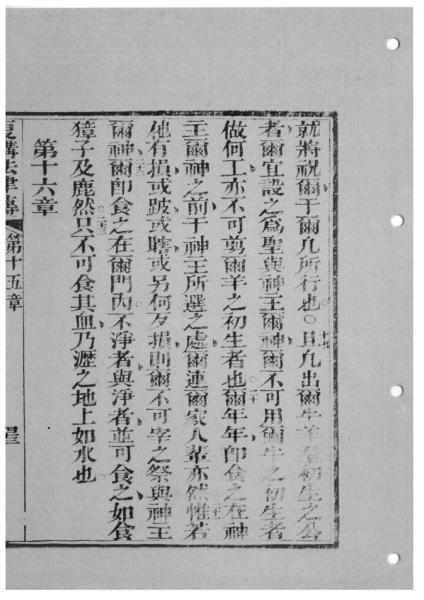 就將祝爾于爾凡所行也○且凡出爾牛羊羣初生之公
者爾宜設之爲聖與神主爾神爾不可用爾牛之初生者
做何工亦不可剪爾羊之初生者也爾年年即食之在神
主爾神之前于神主所選之處爾連爾家人輩亦然惟若
他有損或跛或瞎或另何歹損則爾不可宰之祭與神主
爾神爾即食之在爾門內不淨者與淨者並可食之如食
獐子及鹿然只不可食其血乃瀝之地上如水也
第十六章
復講法律傳 第十五章